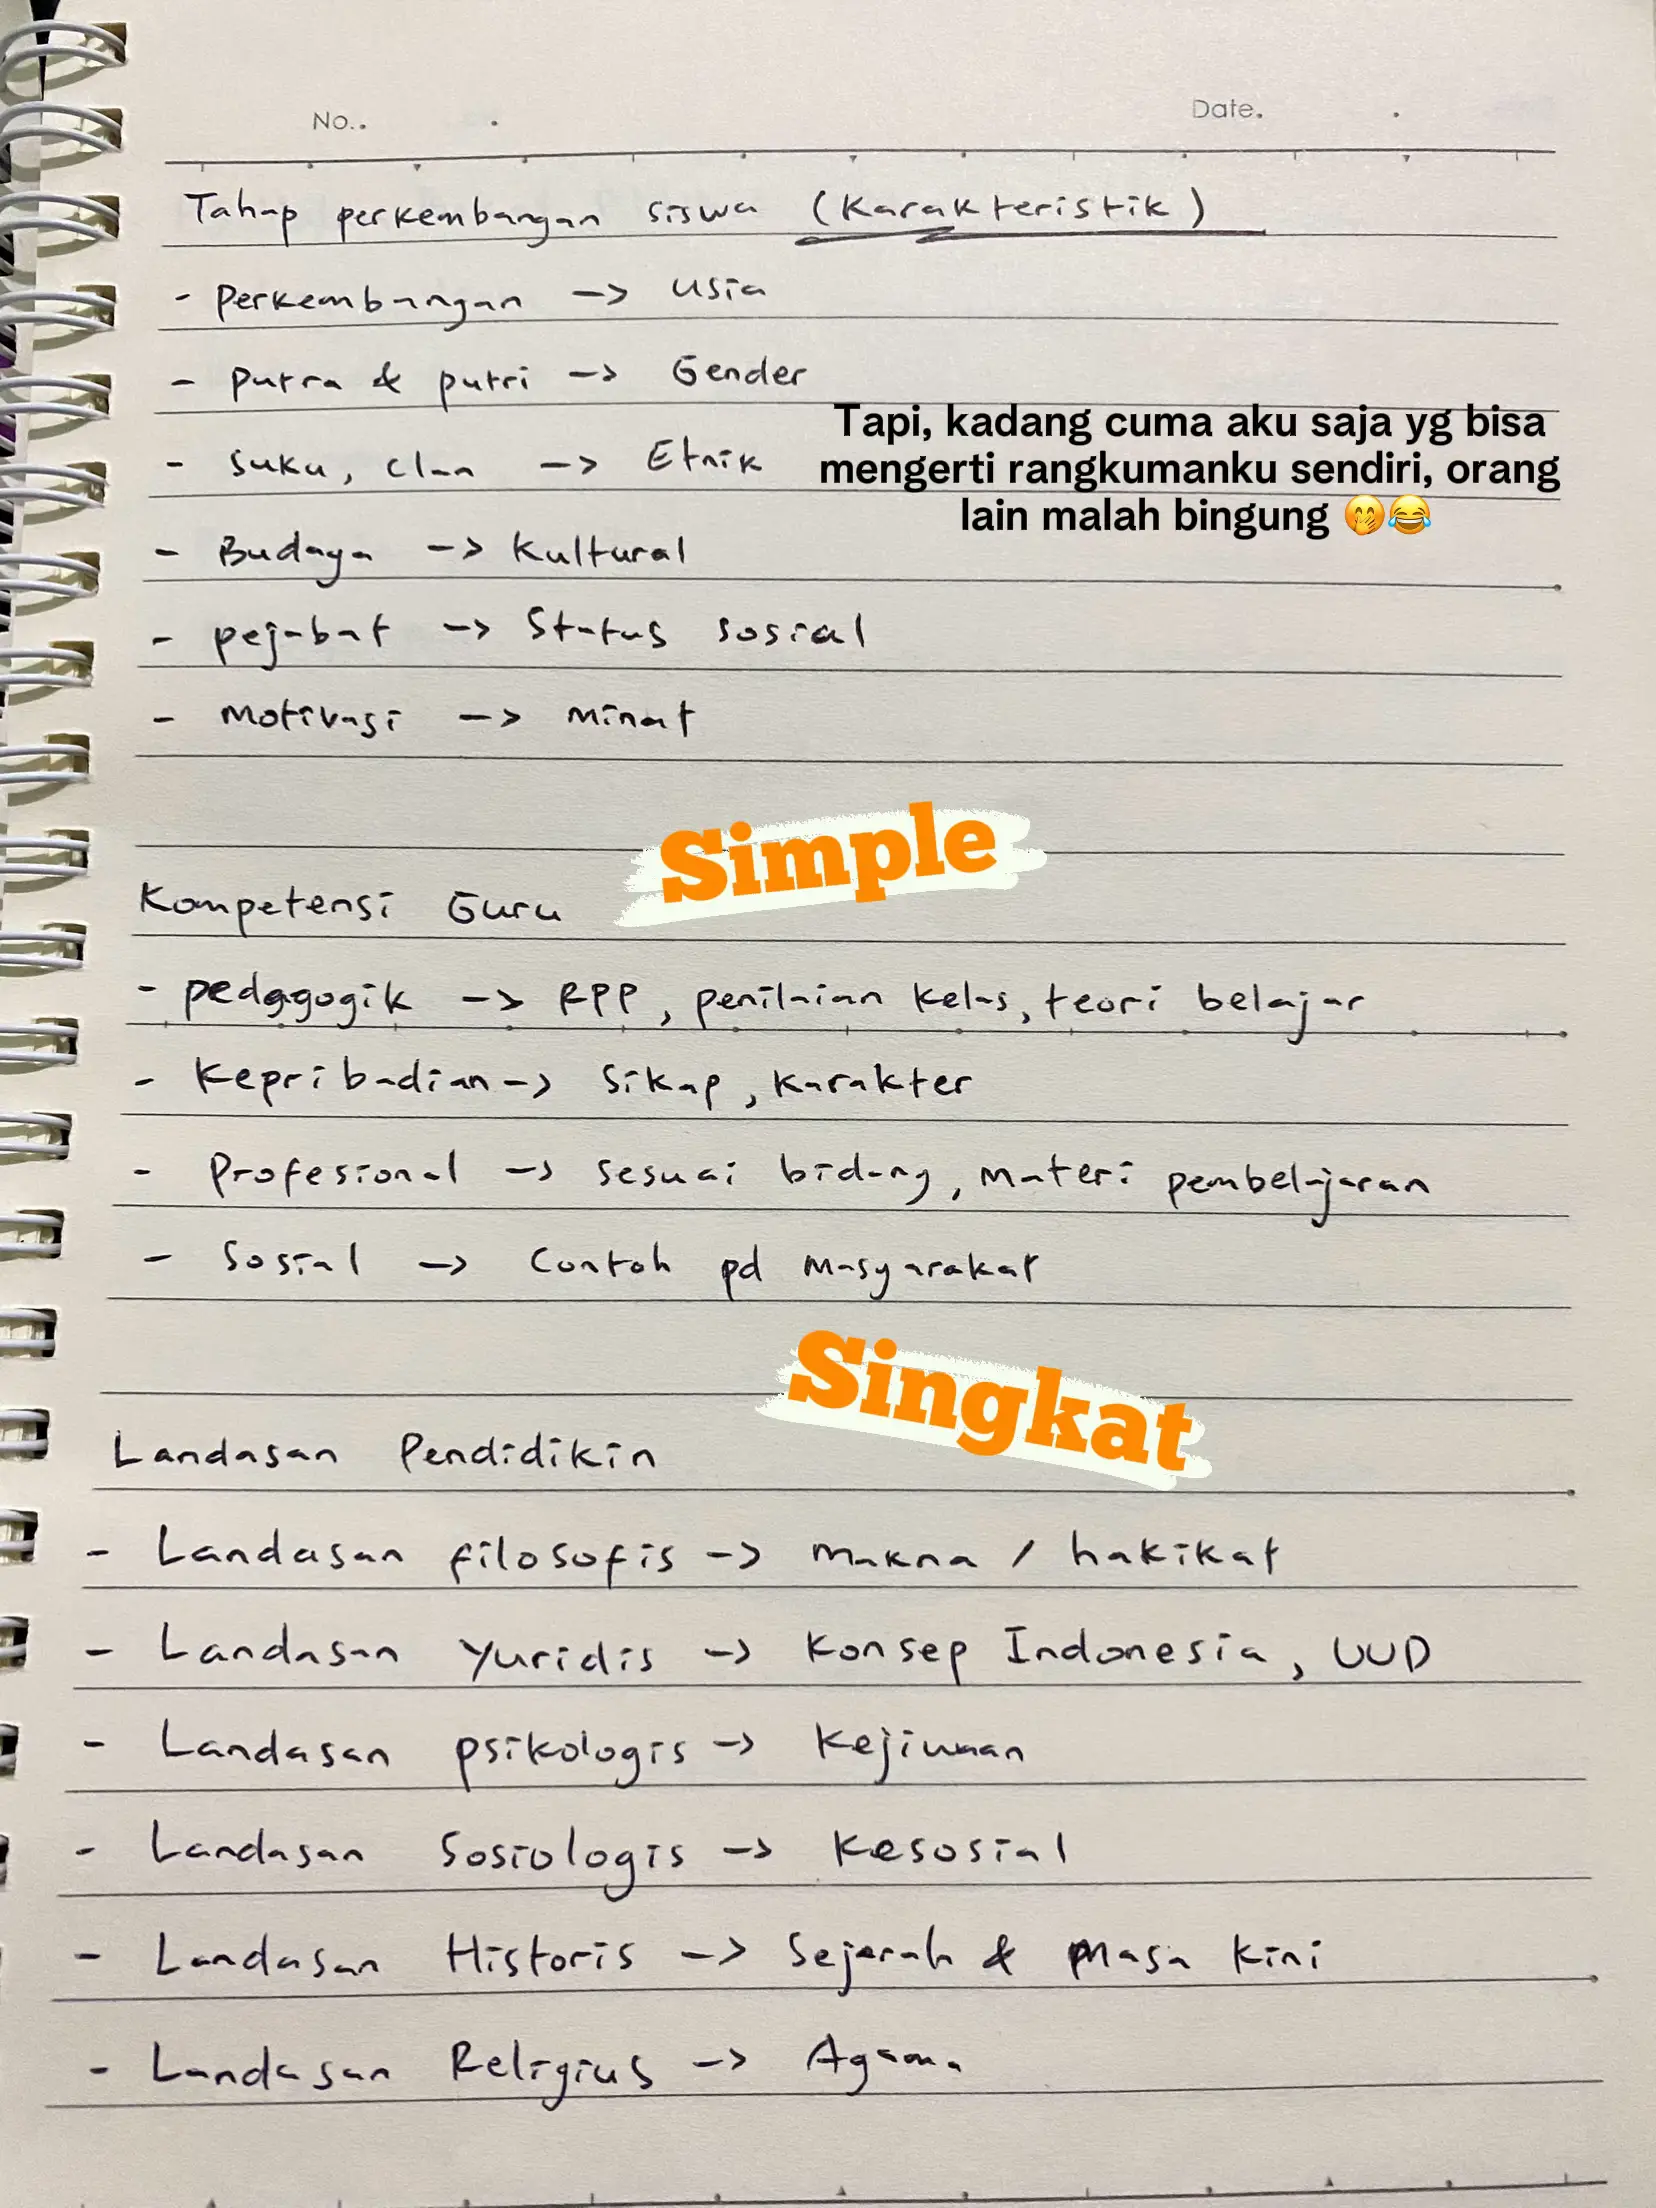 No..
Date.
Tahap perkembangan siswa (Karakteristik)
- Perkembangan -> Usia
- Putra & putri -> Gender
- Suku, clan -> Etnik
Tapi, kadang cuma aku saja yg bisa
mengerti rangkumanku sendiri, orang
lain malah bingung 🤭😂
- Budaya -> Kultural
- pejabat -> Status sosial
- Motivasi -> Minat
Simple
Kompetensi Guru
- pedagogik -> RPP, penilaian kelas, teori belajar
- Kepribadian -> Sikap, Karakter
- Profesional -> sesuai bidang, Materi pembelajaran
- Sosial -> Contoh pd Masyarakat
Singkat
Landasan Pendidikin
- Landasan filosofis -> Makna / hakikat
- Landasan Yuridis -> Konsep Indonesia, UUD
- Landasan psikologis -> Kejiwaan
- Landasan Sosiologis -> Kesosial
- Landasan Historis -> Sejarah & Masa Kini
- Landasan Religius -> Agama